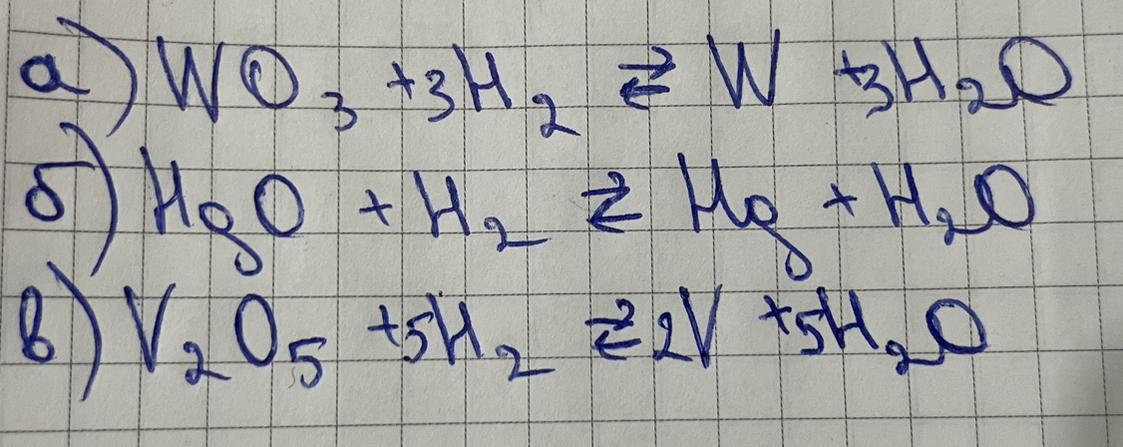 а) WO₃ +3H₂ ⇄ W +3H₂O
б) HgO + H₂ ⇄ Hg + H₂O
в) V₂O₅ +5H₂ ⇄ 2V +5H₂O